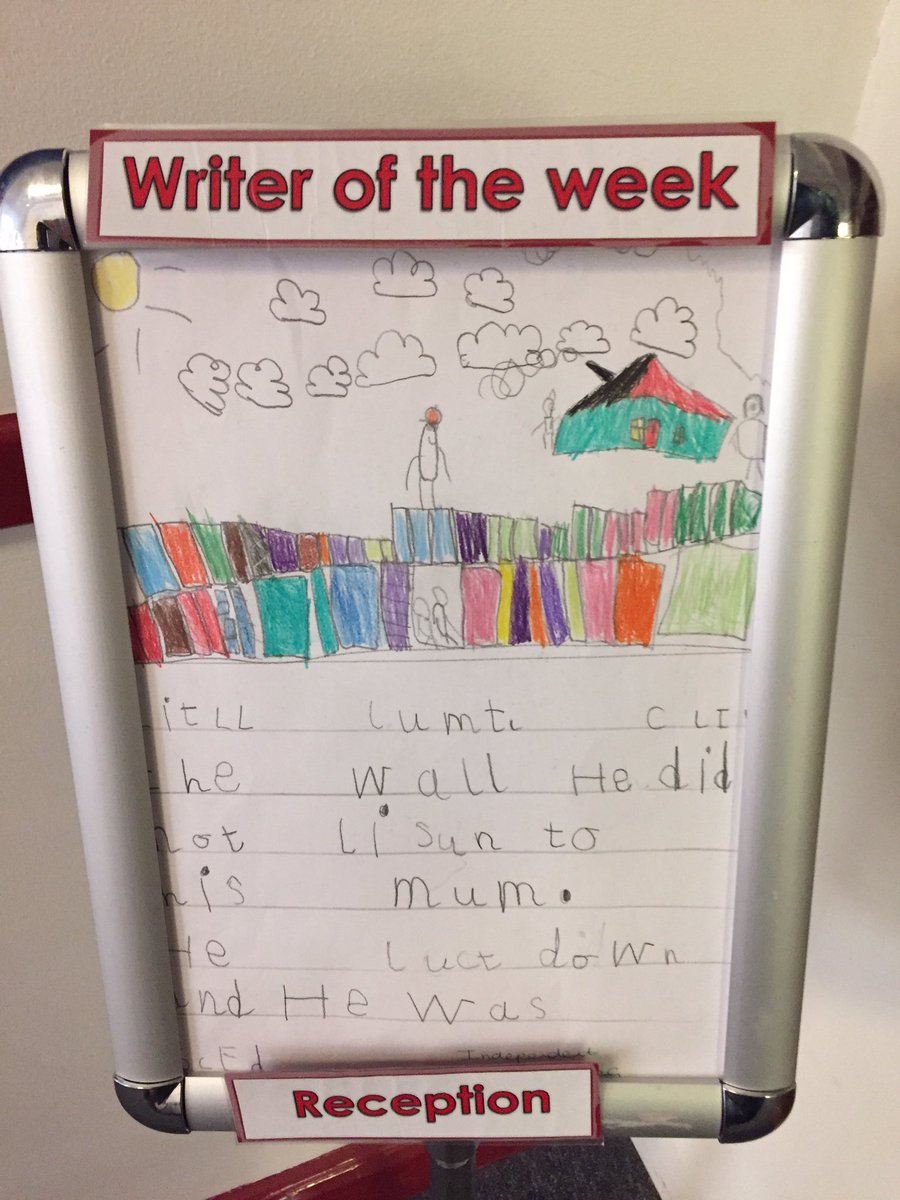 Writer of the week
itLL lumti CLI
the wall He did
not Lisun to
his mum.
He luct down
and He was
Independent
Reception